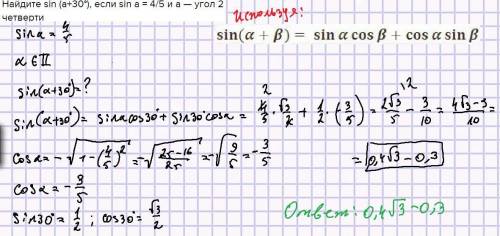 Найдите sin (a+30°), если sin a = 4/5 и a — угол 2
четверти
Используя:
sin(α + β) = sin α cos β + cos α sin β
sin α = 4/5
α ∈ II
sin(α+30°) = ?
sin(α+30°) = sinα cos30° + sin30° cosα = 4/5 · √3/2 + 1/2 · (-3/5) = 2√3/5 - 3/10 = 4√3-3/10 =
= 0,4√3 - 0,3
cosα = -√1-(4/5)² = -√25-16/25 = -√9/5 = -3/5
cosα = -3/5
sin30° = 1/2 ; cos30° = √3/2
Ответ: 0,4√3 - 0,3